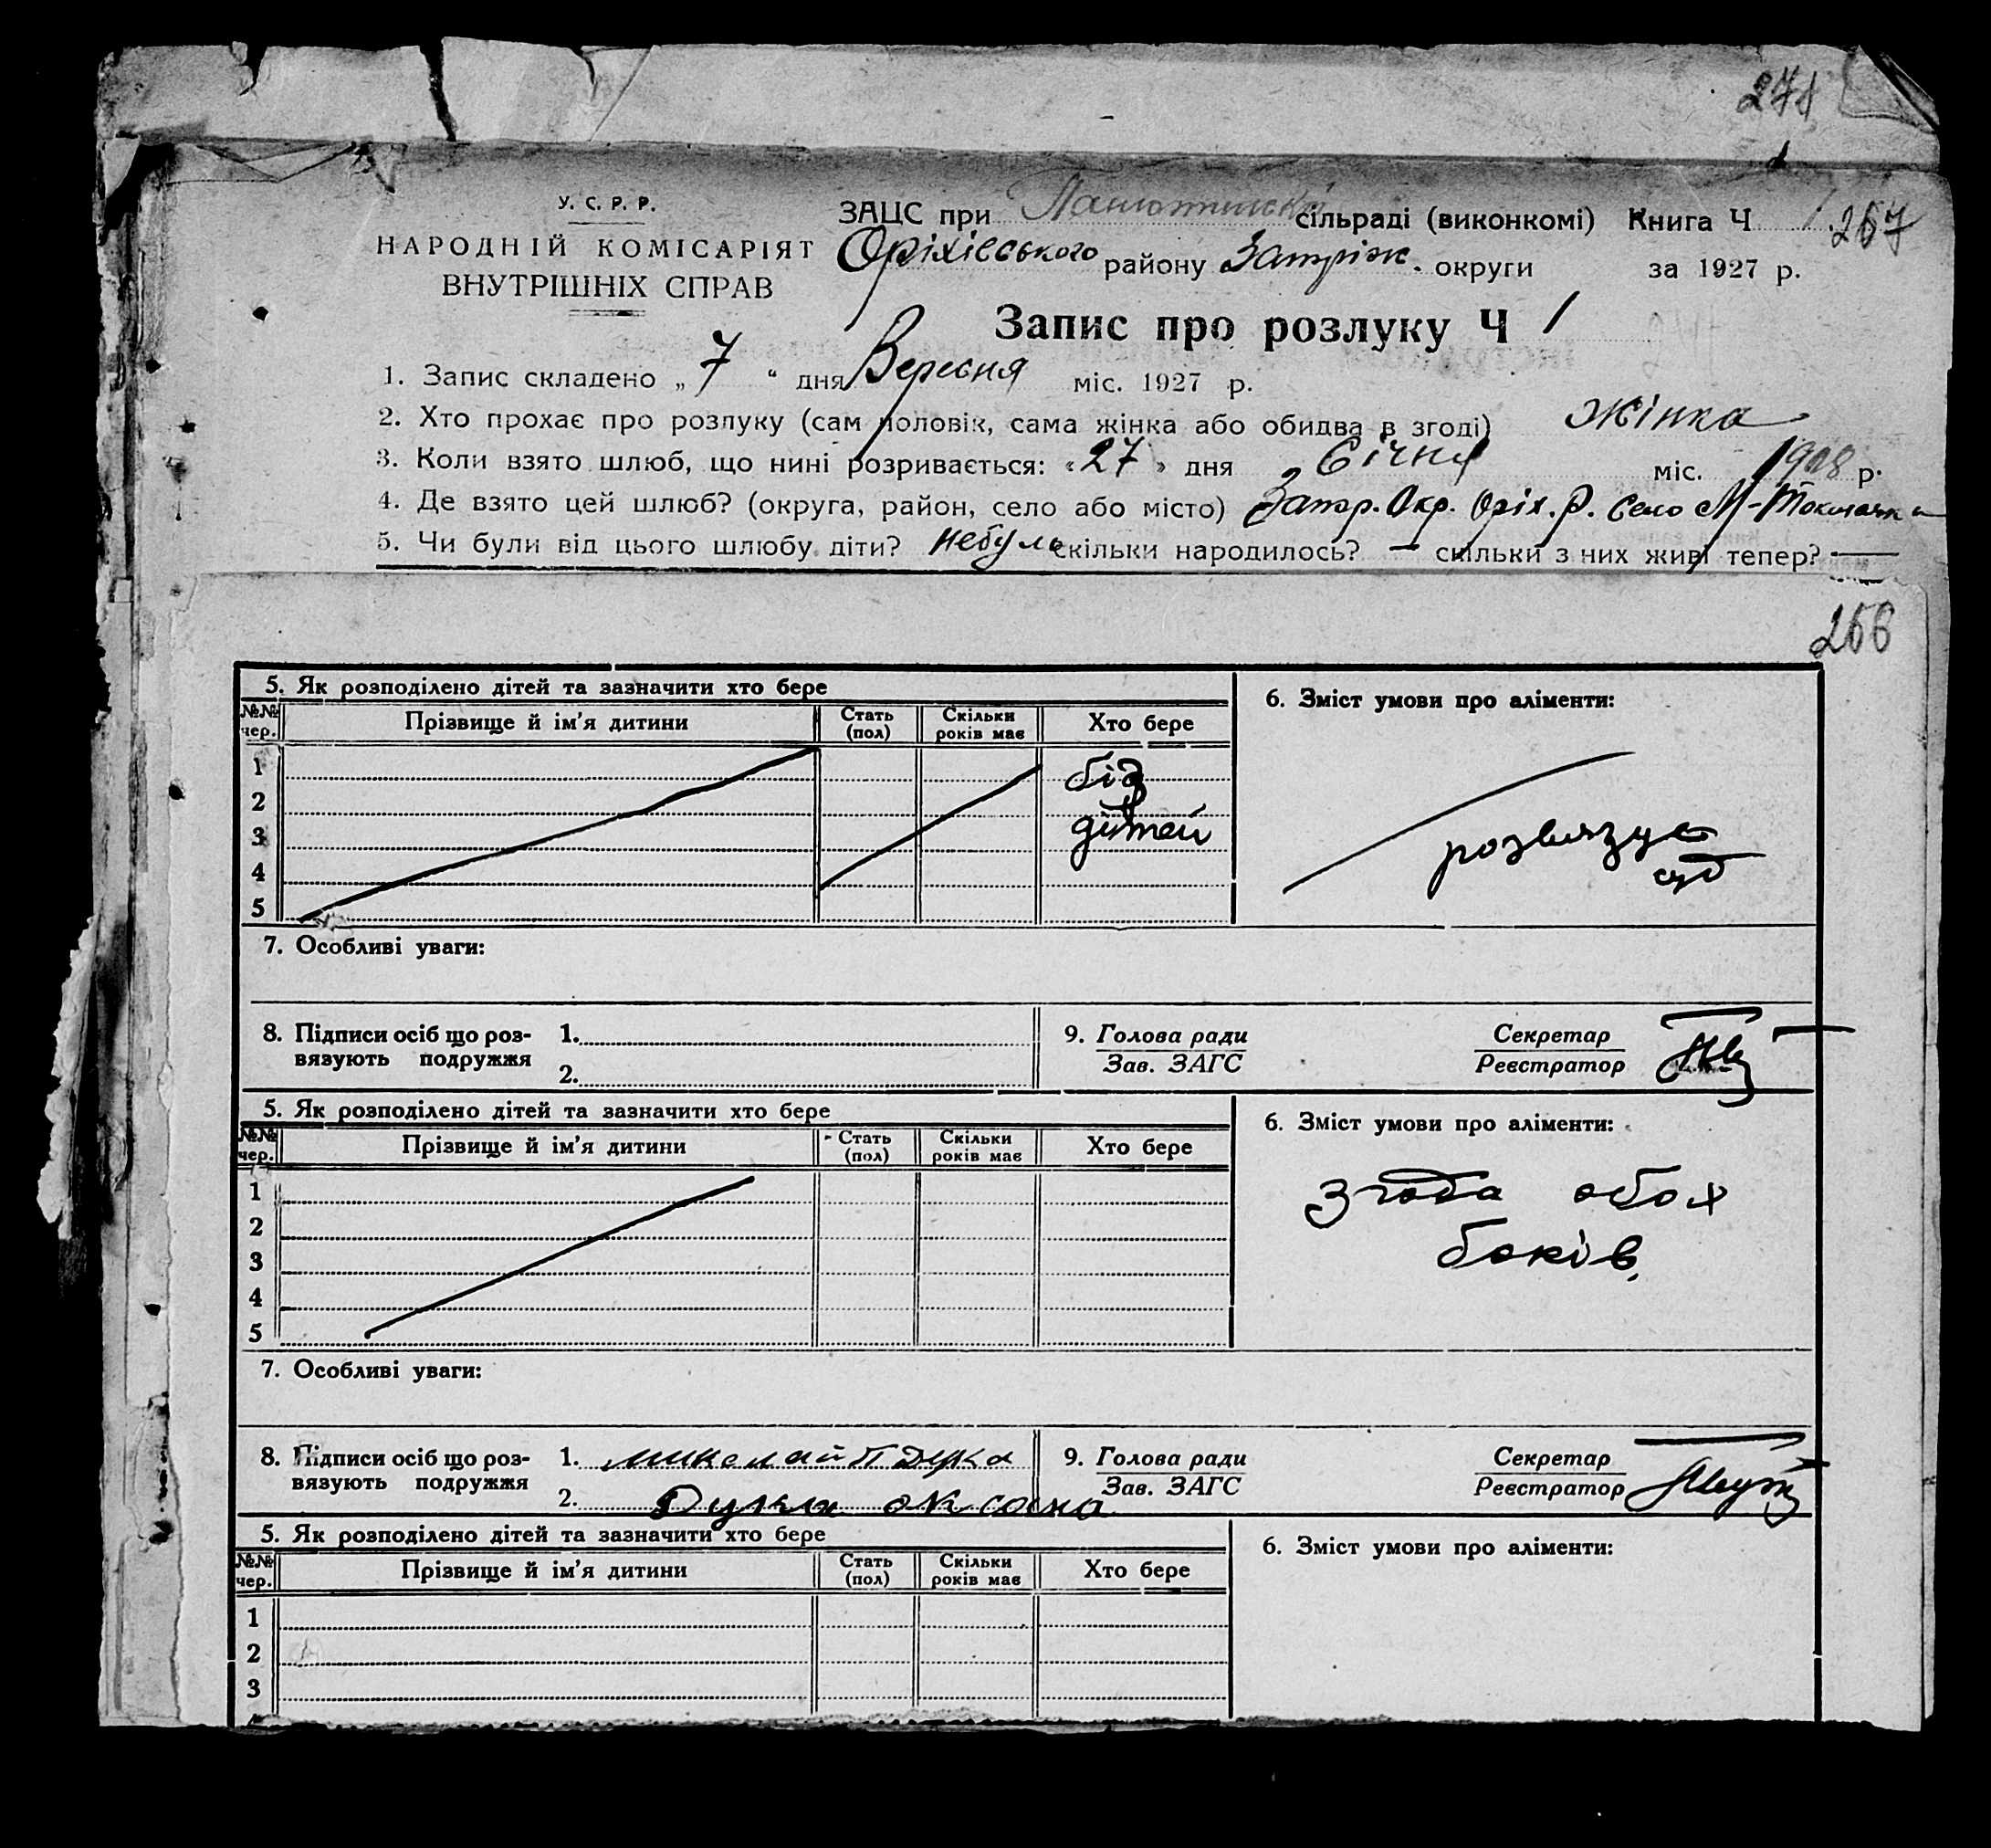 271
У. С. Р. Р.
НАРОДНІЙ КОМІСАРІЯТ
ВНУТРІШНІХ СПРАВ
ЗАЦС при сільраді (виконкомі) Книга Ч 1. 267
Оріхівського району Запріж. округи за 1927 р.
Запис про розлуку Ч 1
1. Запис складено „ 7 “ дня Вересня міс. 1927 р.
2. Хто прохає про розлуку (сам чоловік, сама жінка або обидва в згоді) жінка
3. Коли взято шлюб, що нині розривається: „ 27 “ дня Січня міс. р.
4. Де взято цей шлюб? (округа, район, село або місто) Запр. Окр. Оріх. Р. село М-Токмачка
5. Чи були від цього шлюбу діти? небуло скільки народилось? — скільки з них живі тепер? —
266
5. Як розподілено дітей та зазначити хто бере
6. Зміст умови про аліменти:
№№ чер. Прізвище й ім'я дитини Стать (пол) Скільки років має Хто бере
1 біз
2
3 дітей розвязує
4 суд
5
7. Особливі уваги:
8. Підписи осіб що роз-вязують подружжя 1. 2.
9. Голова ради Зав. ЗАГС Секретар Реєстратор
5. Як розподілено дітей та зазначити хто бере
6. Зміст умови про аліменти:
№№ чер. Прізвище й ім'я дитини Стать (пол) Скільки років має Хто бере
1 згода обох
2
3 боків,
4
5
7. Особливі уваги:
8. Підписи осіб що роз-вязують подружжя 1. миколай П Дука
2. Дука оксана
9. Голова ради Зав. ЗАГС Секретар Реєстратор
5. Як розподілено дітей та зазначити хто бере
6. Зміст умови про аліменти:
№№ чер. Прізвище й ім'я дитини Стать (пол) Скільки років має Хто бере
1
2
3